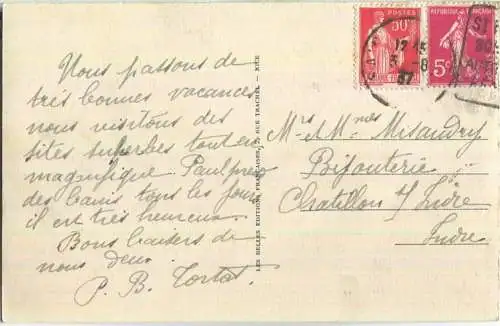 Nous passons de
très bonnes vacances
nous visitons des
sites superbes tout est
magnifique. Paul prend
des bains tous les jours
il est très heureux
Bons baisers de
nous deux.
P. B. Tortat
LES BELLES EDITIONS FRANÇAISES, RUE TRACHEL - NICE
POSTES
50c
RÉPUBLIQUE FRANÇAISE
5c
17 45
3 -8
37
Mrs et Mmes Misandry
Bijouterie
Chatillon s/ Indre
Indre